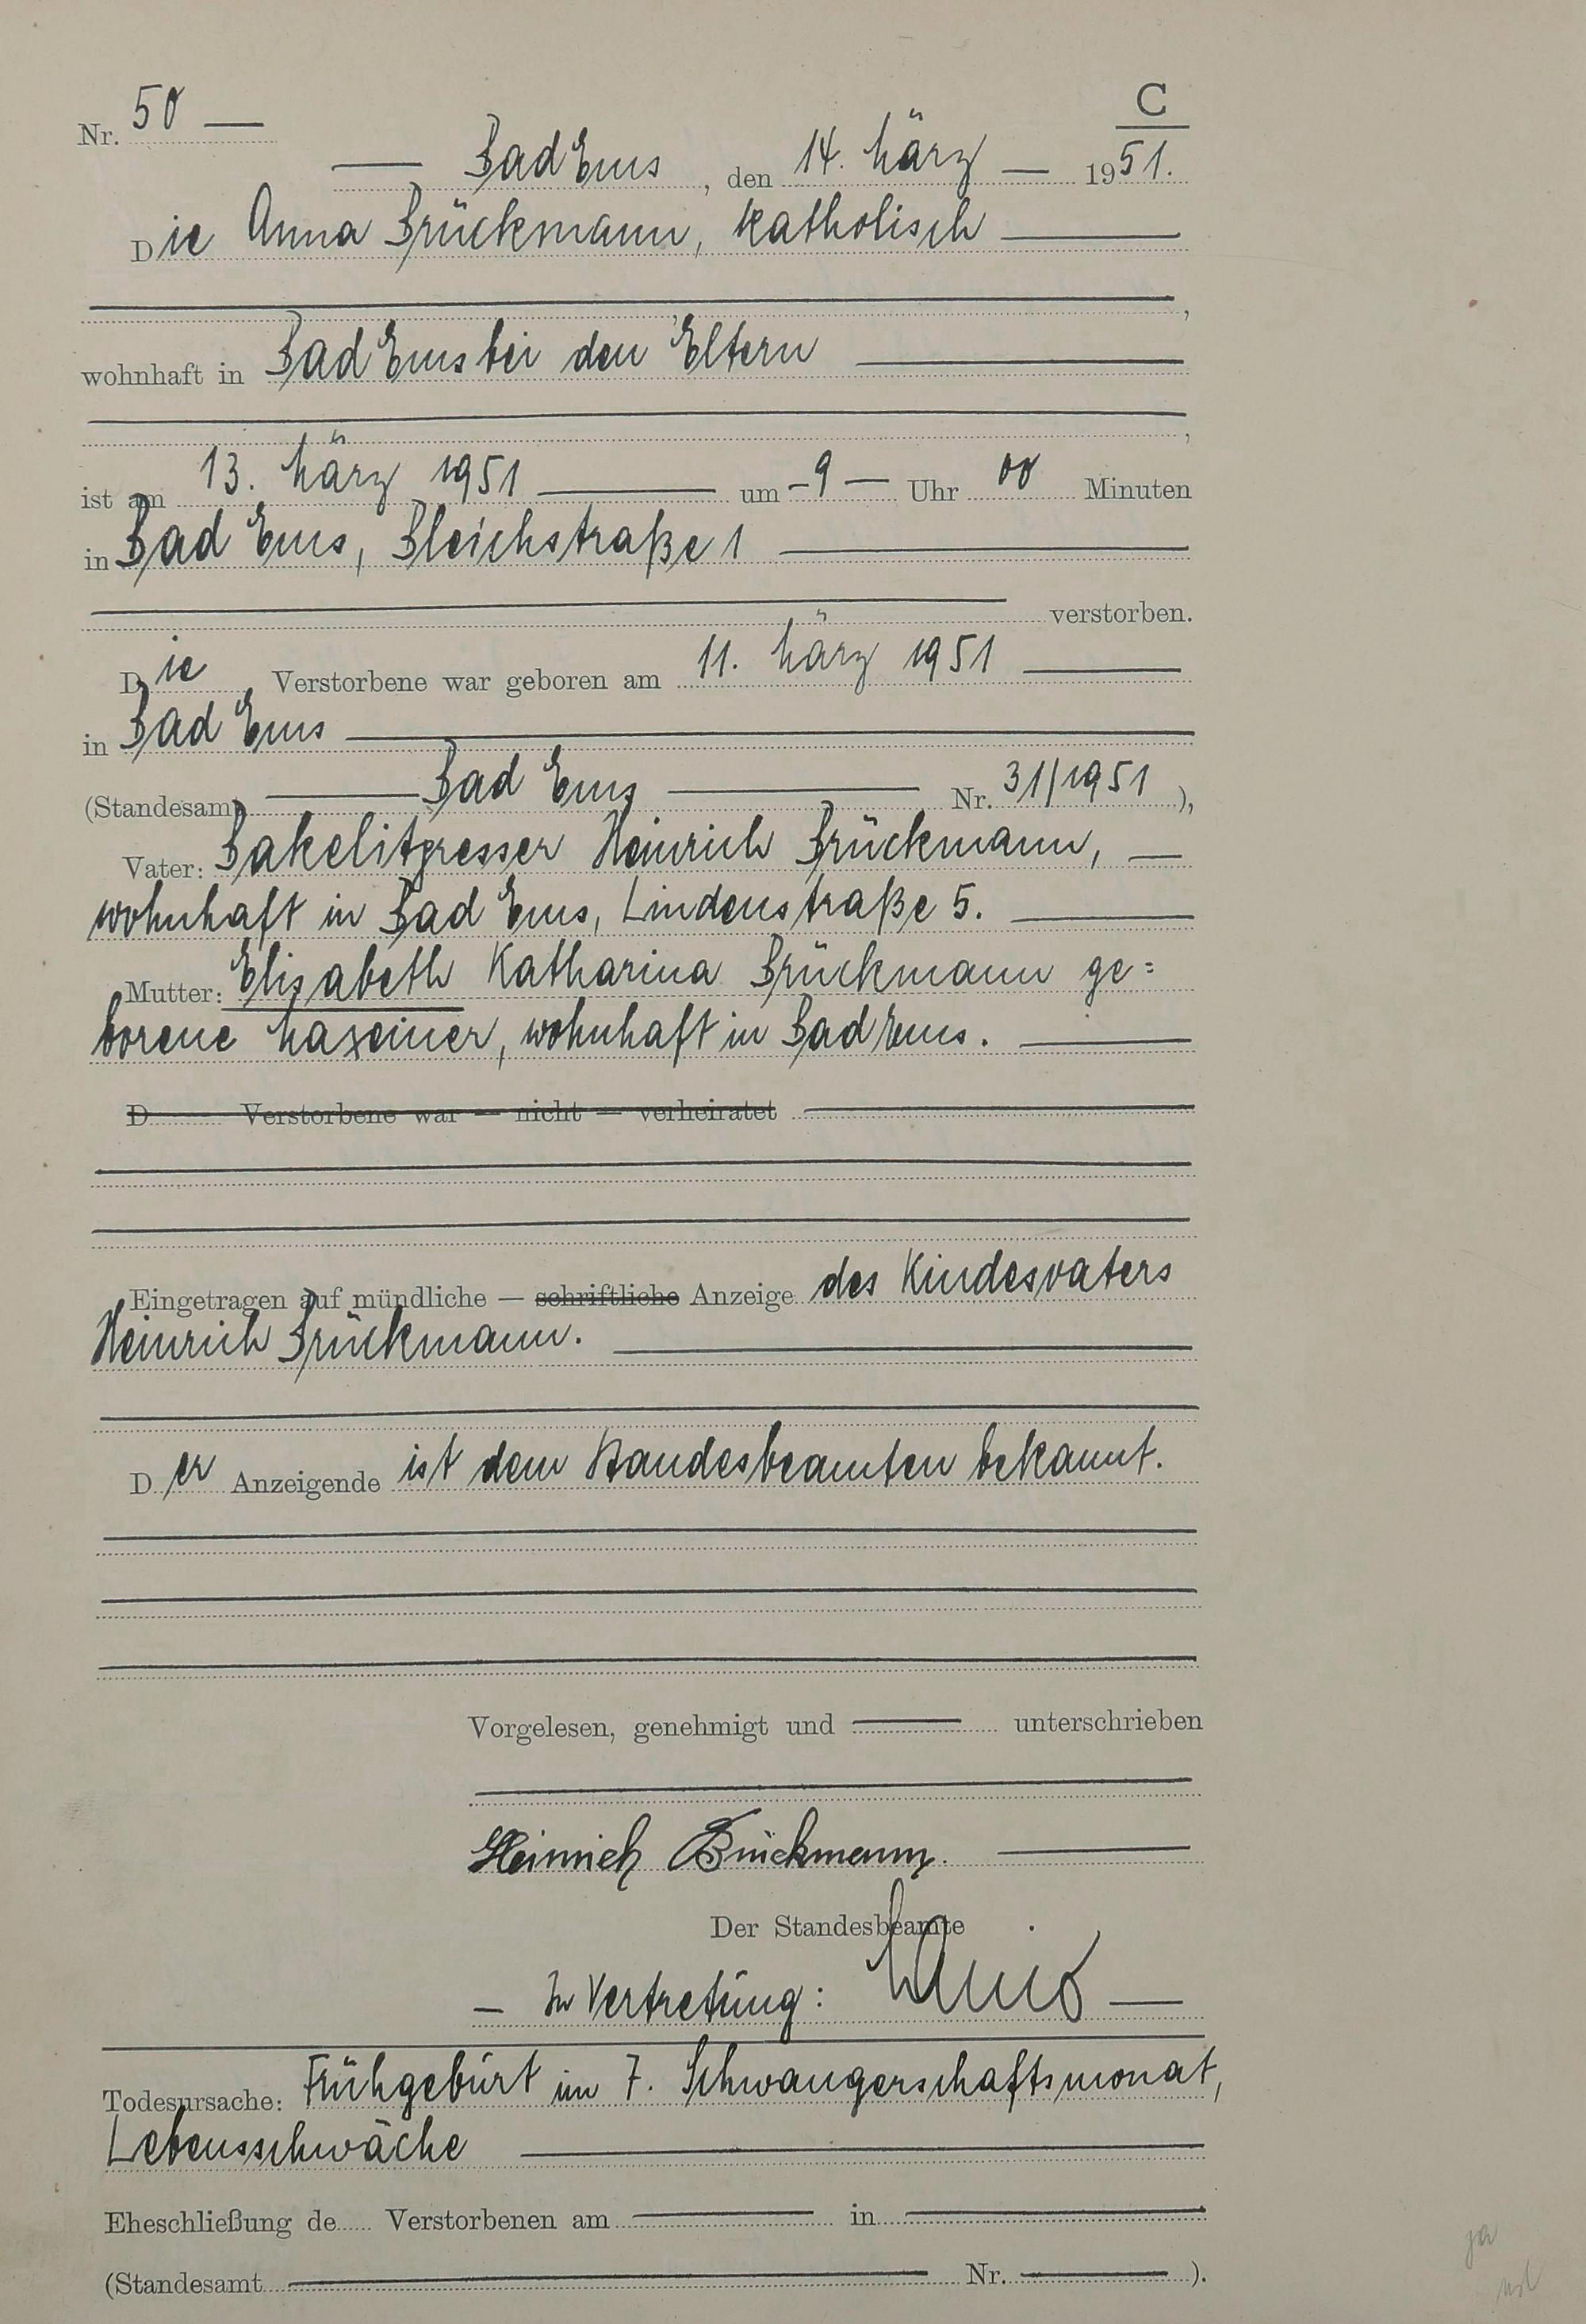 C
Nr. 50 —
— Bad Ems, den 14. März — 1951.
Die Anna Brückmann, katholisch —
,
wohnhaft in Bad Ems bei den Eltern —
,
ist am 13. März 1951 — um – 9 — Uhr 00 Minuten
in Bad Ems, Bleichstraße 1 —
— verstorben.
Die Verstorbene war geboren am 11. März 1951 —
in Bad Ems —
(Standesamt — Bad Ems — Nr. 31/1951),
Vater: Bakelitpresser Heinrich Brückmann, —
wohnhaft in Bad Ems, Lindenstraße 5. —
Mutter: Elisabeth Katharina Brückmann ge=
borene Maxeiner, wohnhaft in Bad Ems. —
D Verstorbene war — nicht — verheiratet —
Eingetragen auf mündliche — schriftliche Anzeige des Kindesvaters
Heinrich Brückmann. —
Der Anzeigende ist dem Standesbeamten bekannt.
Vorgelesen, genehmigt und — unterschrieben
Heinrich Brückmann. —
Der Standesbeamte
– In Vertretung: —
Todesursache: Frühgeburt im 7. Schwangerschaftsmonat,
Lebensschwäche —
Eheschließung de Verstorbenen am — in —
(Standesamt — Nr. — ).